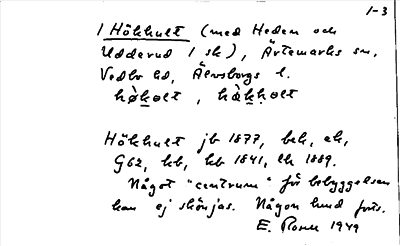 1-3
1 Hökhult (med Heden och
Udderud 1 sk), Ärtemarks sn,
Vedbo hd, Älvsborgs l.
hø̀kølt, hàkḥolt
Hökhult jb 1877, bek, ek,
G62, kb, hb 1841, lk 1889.
Något "centrum" för bebyggelsen
kan ej skönjas. Någon hund
E. 1949